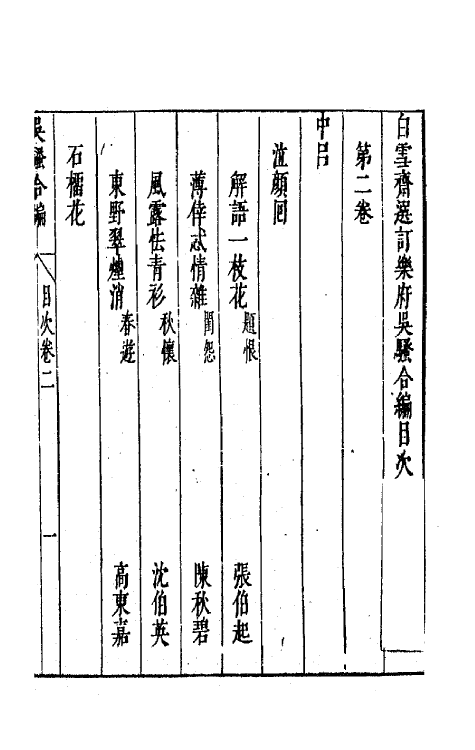 白雪齋選訂樂府吳騷合編目次
第二卷
中呂
泣顏回
解語一枝花 題恨 張伯起
薄倖忒情雜 閨怨 陳秋碧
風露怯青衫 秋懷 沈伯英
東野翠煙消 春遊 高東嘉
石榴花
吳騷合編 目次卷二 一